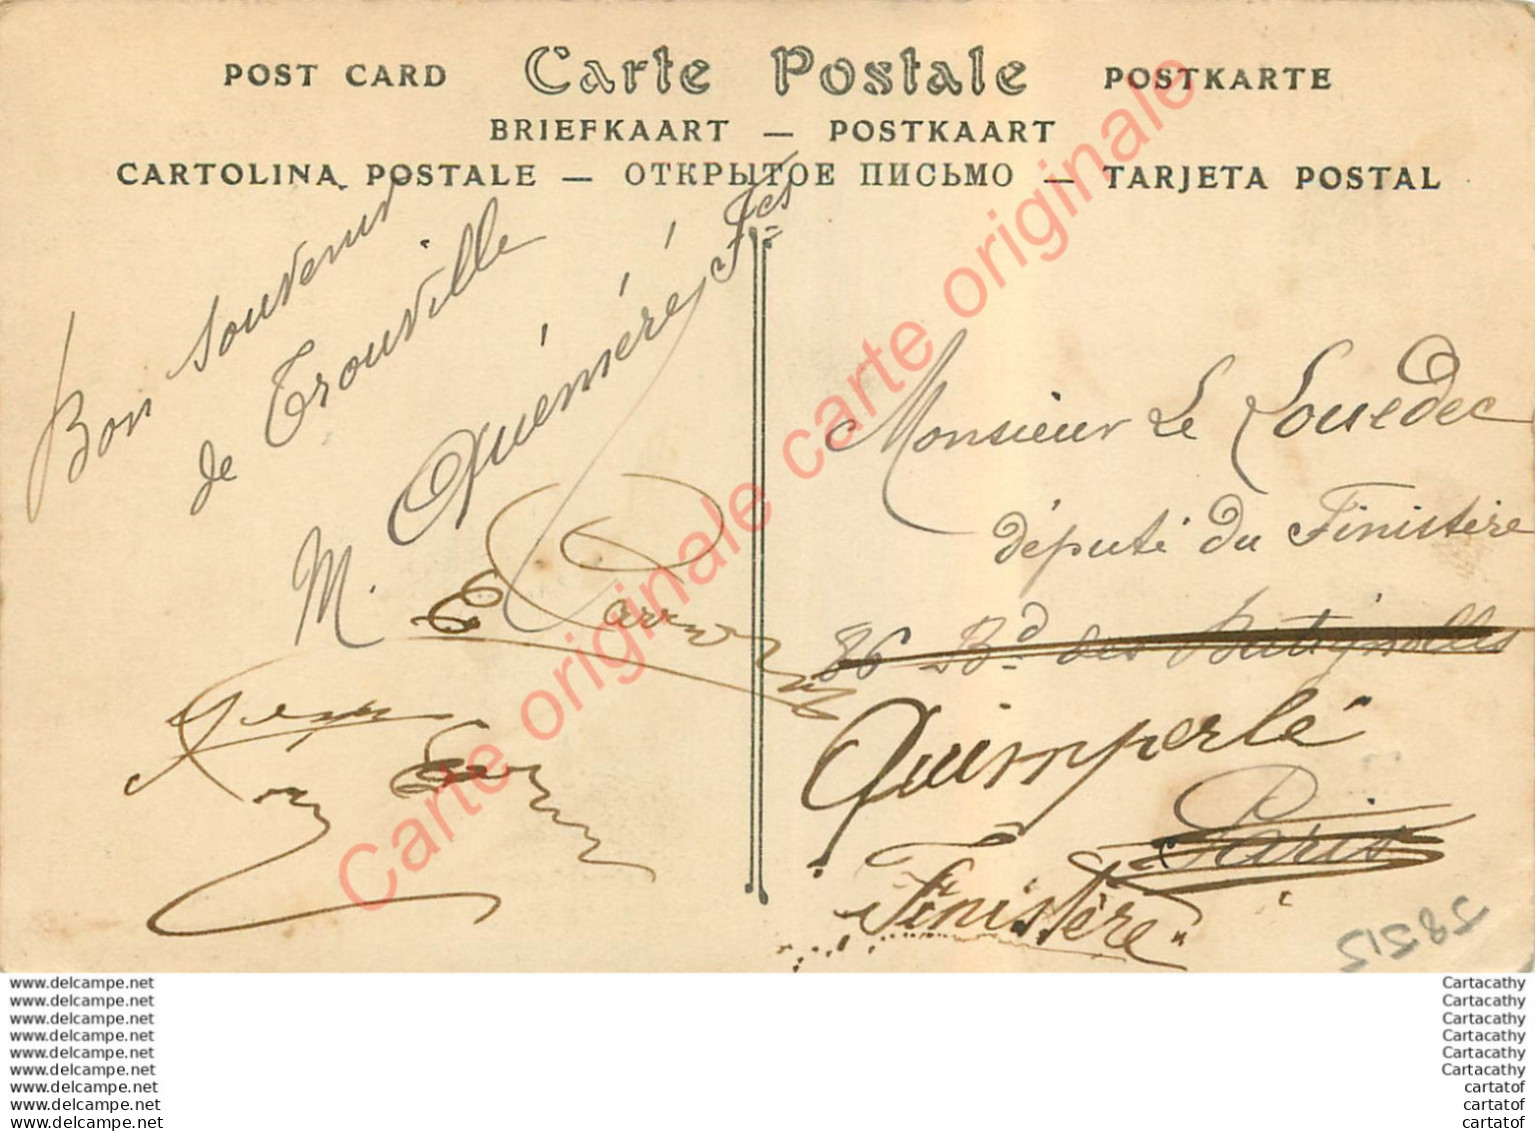 POST CARD Carte Postale POSTKARTE
BRIEFKAART — POSTKAART
CARTOLINA POSTALE — ОТКРЫТОЕ ПИСЬМО — TARJETA POSTAL
Bon souvenir
de Trouville
M. Quéméré Fçs
E
Monsieur Le Louedec
député du Finistère
86 Bd des Batignolles
Quimperlé
Paris
Finistère
58515
Carte originale carte originale
www.delcampe.net
www.delcampe.net
www.delcampe.net
www.delcampe.net
www.delcampe.net
www.delcampe.net
www.delcampe.net
www.delcampe.net
www.delcampe.net
Cartacathy
Cartacathy
Cartacathy
Cartacathy
Cartacathy
Cartacathy
cartatof
cartatof
cartatof